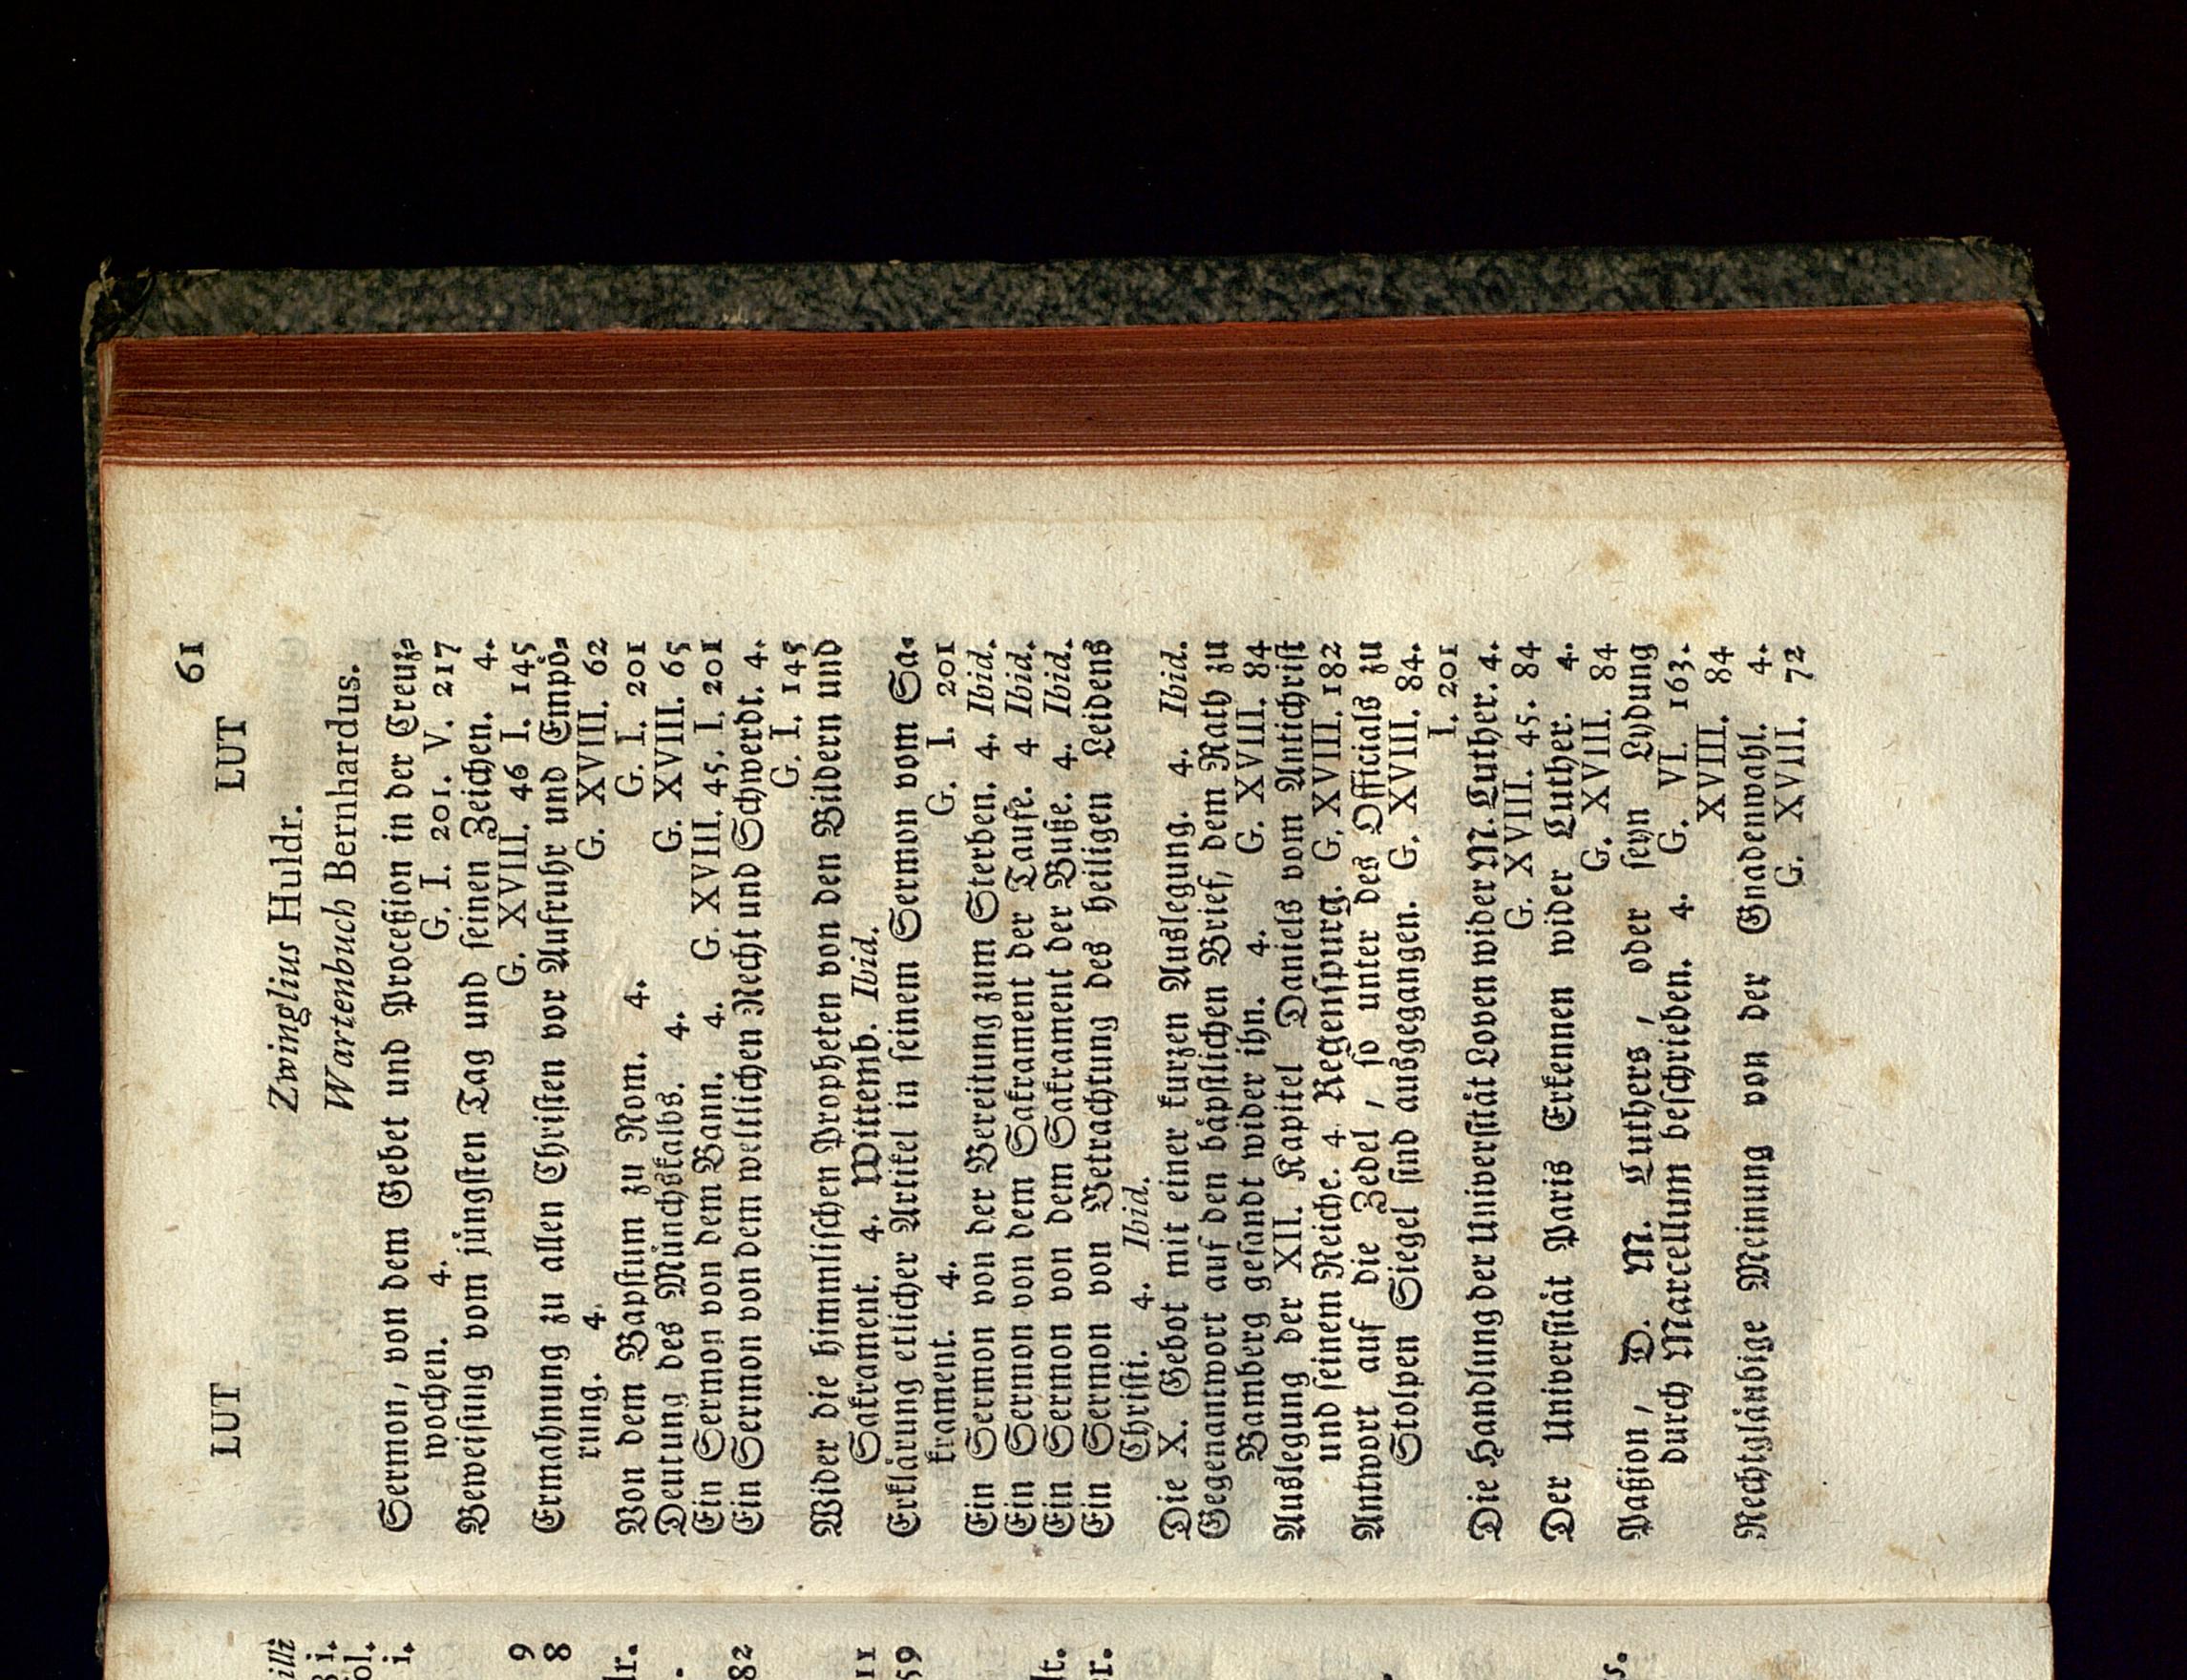 LUT LUT 61
Zwinglius Huldr.
Wartenbuch Bernhardus.
Sermon, von dem Gebet und Proceßion in der Creuz-
wochen. 4. G. I. 201. V. 217
Beweisung vom jüngsten Tag und seinen Zeichen. 4.
G. XVIII. 46 I. 145
Ermahnung zu allen Christen vor Aufruhr und Empö-
rung. 4. G. XVIII. 62
Von dem Bapstum zu Rom. 4. G. I. 201
Deutung des Münchskalbs. 4. G. XVIII. 65
Ein Sermon von dem Bann. 4. G. XVIII. 45. I. 201
Ein Sermon von dem weltlichen Recht und Schwerdt. 4.
G. I. 145
Wider die himmlischen Propheten von den Bildern und
Sakrament. 4. Wittemb. Ibid.
Erklärung etlicher Artikel in seinem Sermon vom Sa-
krament. 4. G. I. 201
Ein Sermon von der Bereitung zum Sterben. 4. Ibid.
Ein Sermon von dem Sakrament der Taufe. 4 Ibid.
Ein Sermon von dem Sakrament der Buße. 4. Ibid.
Ein Sermon von Betrachtung des heiligen Leidens
Christi. 4. Ibid.
Die X. Gebot mit einer kurzen Auslegung. 4. Ibid.
Gegenantwort auf den bäpstlichen Brief, dem Rath zu
Bamberg gesandt wider ihn. 4. G. XVIII. 84
Auslegung der XII. Kapitel Daniels vom Antichrist
und seinem Reiche. 4 Regenspurg. G. XVIII. 182
Antwort auf die Zedel, so unter des Officials zu
Stolpen Siegel sind ausgegangen. G. XVIII. 84.
I. 201
Die Handlung der Universität Loven wider M. Luther. 4.
G. XVIII. 45. 84
Der Universität Paris Erkennen wider Luther. 4.
G. XVIII. 84
Paßion, D. M. Luthers, oder seyn Lydung
durch Marcellum beschrieben. 4. G. VI. 163.
XVIII. 84
Rechtgläubige Meinung von der Gnadenwahl. 4.
G. XVIII. 72
illi
i.
ol.
i.
9
8
lr.
82
11
59
lt.
er.
s.